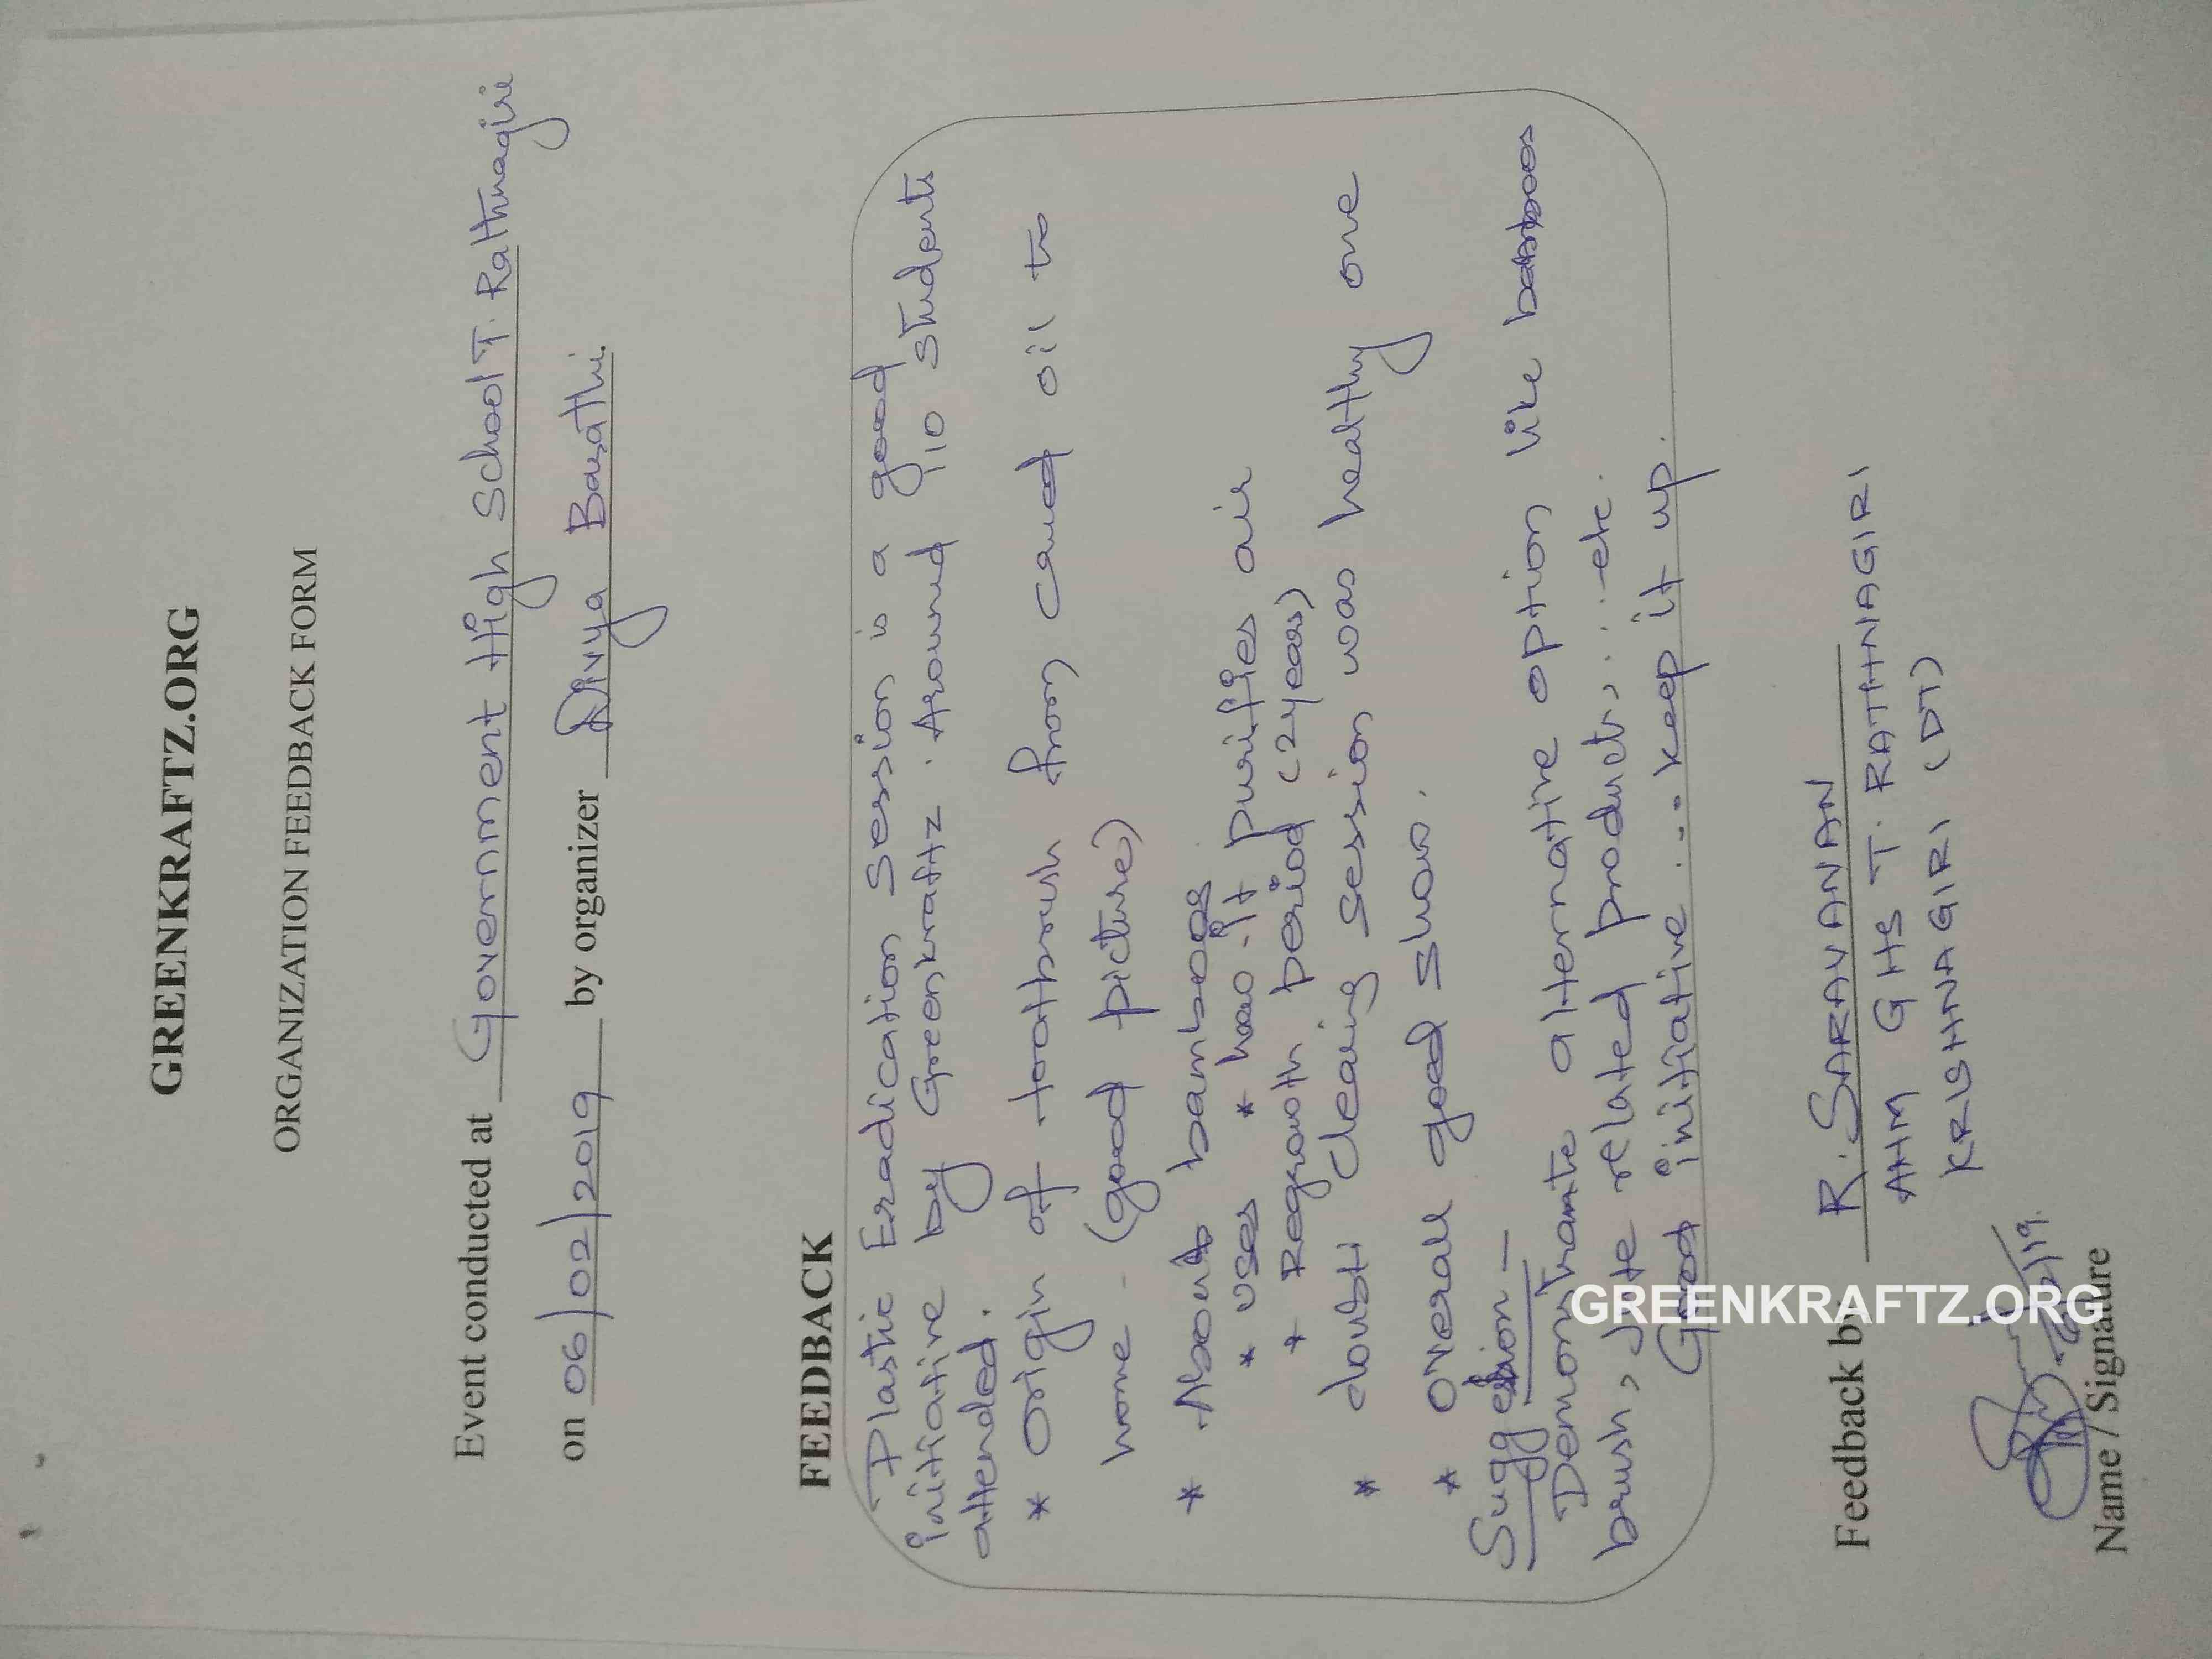 GREENKRAFTZ.ORG
ORGANIZATION FEEDBACK FORM
Event conducted at Government High School T. Rathnagiri
on 06/02/2019 by organizer Divya Barathi.
FEEDBACK
Plastic Eradication Session is a good
initiative by Greenkraftz. Around 110 students
attended.
* Origin of toothbrush from caud oil to
home - (good picture)
* About bamboos
* uses * how it purifies air
* Regrowth period (2years)
* doubt clearing session was healthy one
* overall good show.
Suggestion -
Demonstrate alternative option like bamboos
brush, Jute related products, ... etc.
Good initiative ... keep it up.
Feedback by R. SARAVANAN
AHM GHS T. RATHNAGIRI
KRISHNAGIRI (DT)
Name / Signature
GREENKRAFTZ.ORG